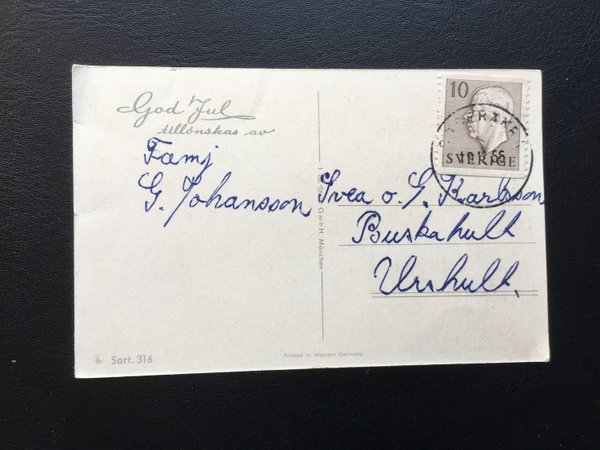 God Jul
tillönskas av
Famj
G. Johansson
10
SVERIGE
Svea o. G. Karlsson
Buskahult
Urshult.
GmbH, München
Sort. 316
Printed in Western Germany